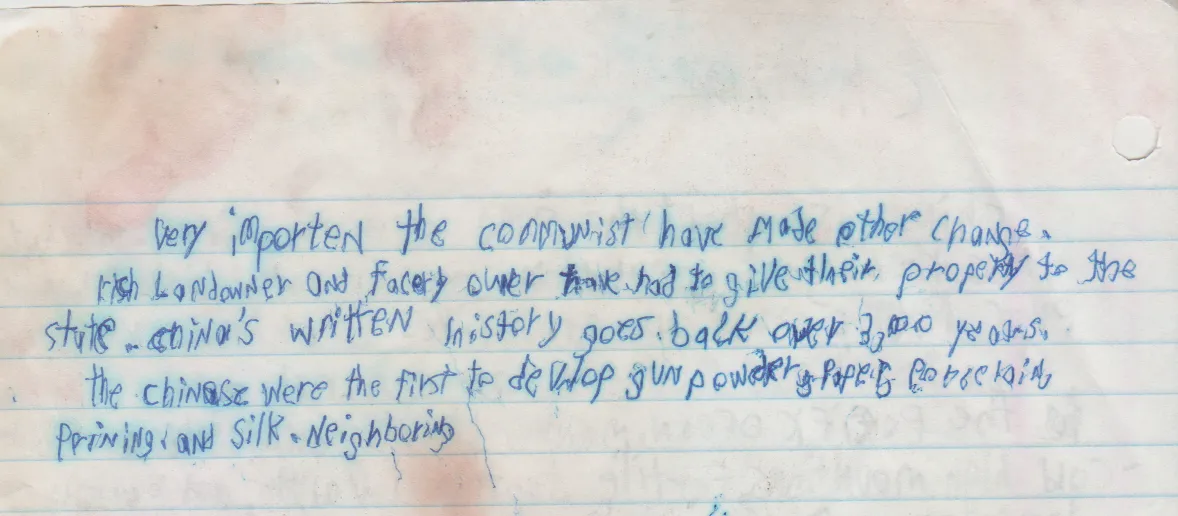 very importen the communist have made other change.
rish Landowner and facery owner have had to give their property to the
state. china's written history goes back over 3,000 years.
the chinese were the first to develop gun powder, paper, porcekin,
prining, and silk. Neighboring